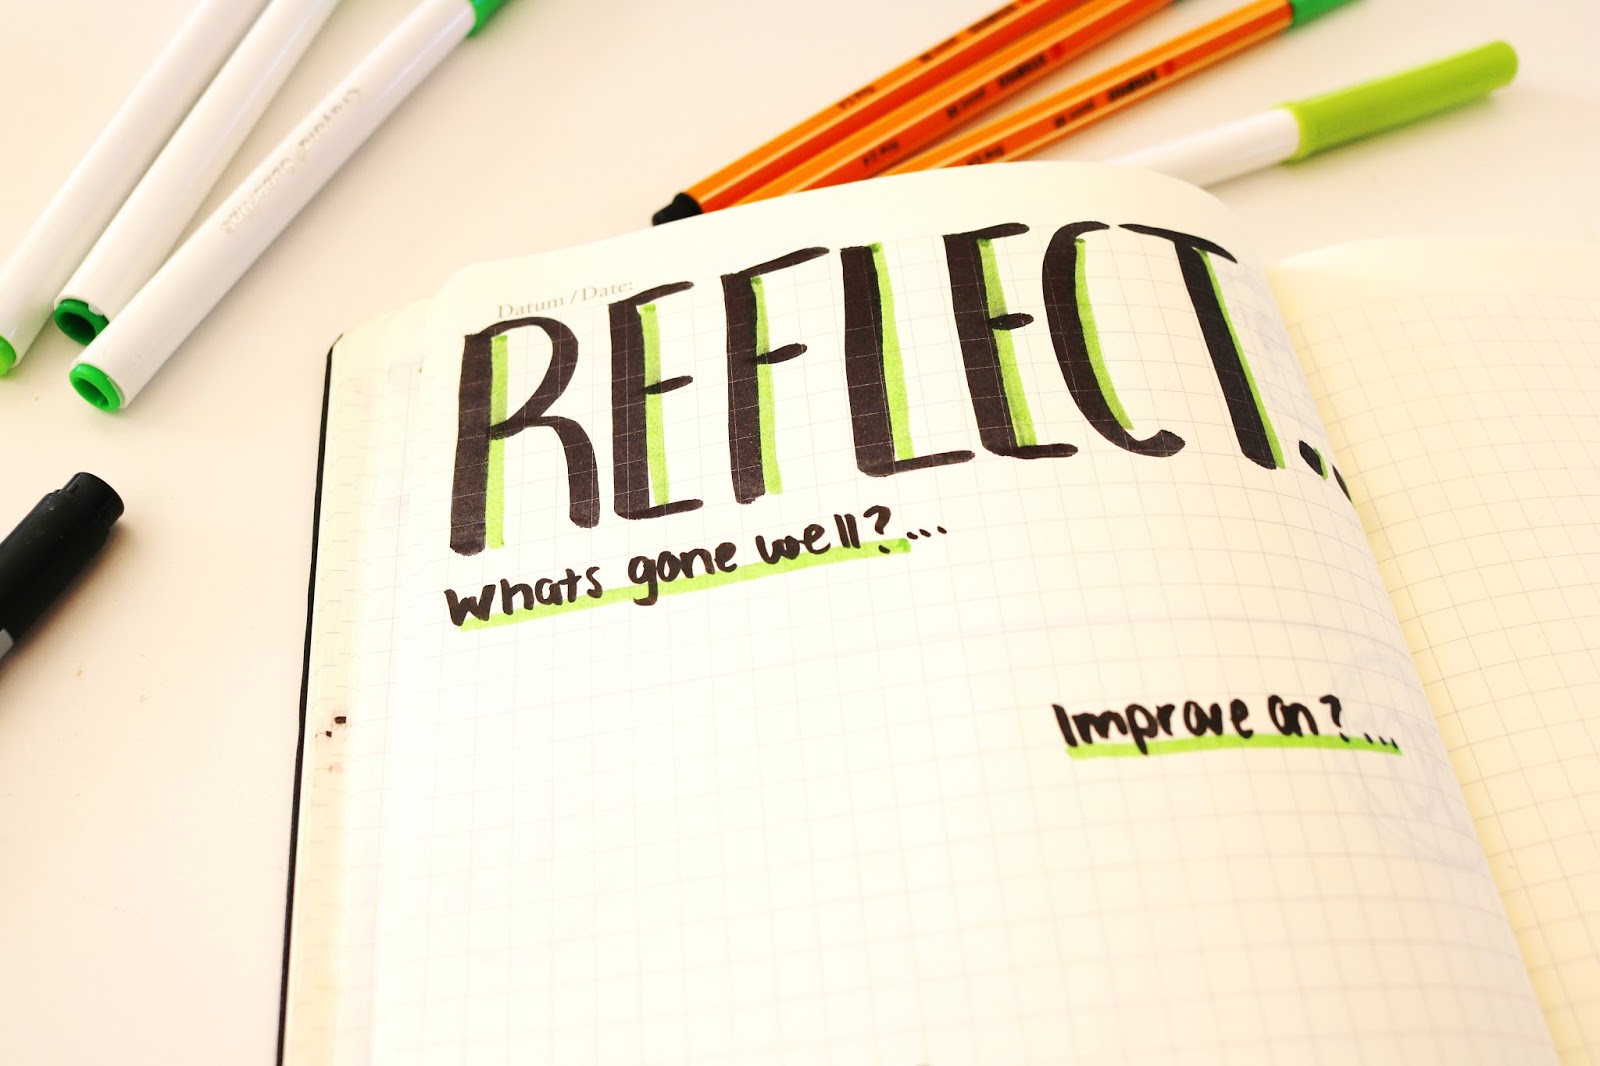 Crayola Supertips
Datum / Date:
REFLECT...
Whats gone well?...
Improve on?...